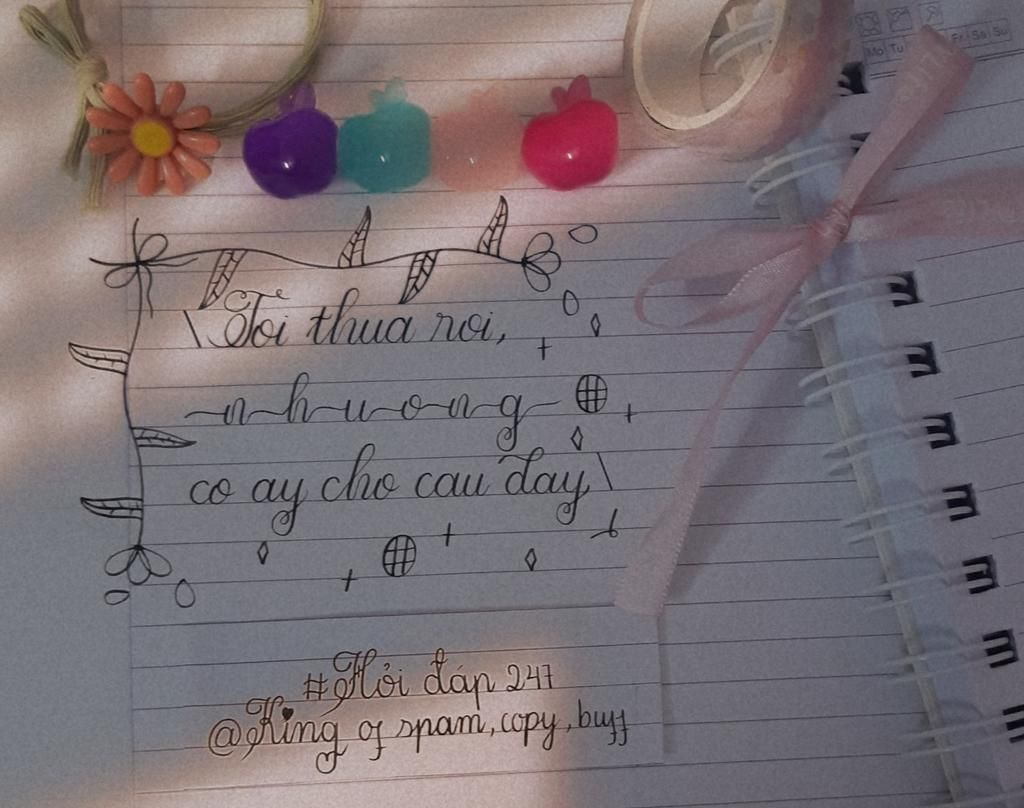 Mo Tu Fr Sa Su
\ Toi thua roi,
~n~h~u~o~n~g~
co ay cho cau đay \
#Hỏi đáp 247
@King of spam, copy, buff